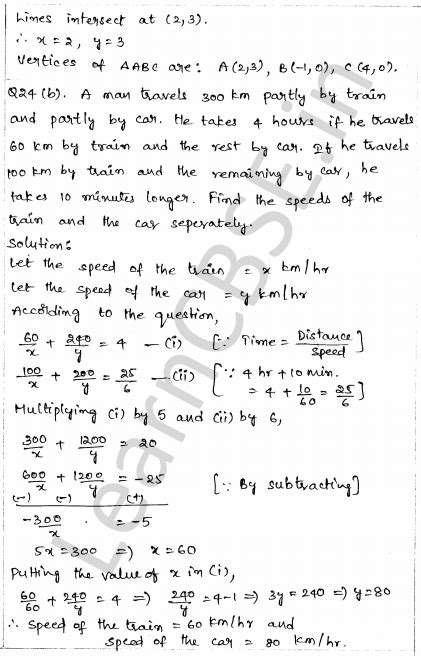 Lines intersect at (2,3).
∴ x = 2, y = 3
Vertices of ΔABC are: A(2,3), B(-1,0), C(4,0).
Q24(b). A man travels 300 km partly by train
and partly by car. He takes 4 hours if he travels
60 km by train and the rest by car. If he travels
100 km by train and the remaining by car, he
takes 10 minutes longer. Find the speeds of the
train and the car seperately.
Solution:
Let the speed of the train = x km/hr
Let the speed of the car = y km/hr
According to the question,
60/x + 240/y = 4 — (i) [∵ Time = Distance/Speed]
100/x + 200/y = 25/6 — (ii) [∵ 4 hr + 10 min.
= 4 + 10/60 = 25/6]
Multiplying (i) by 5 and (ii) by 6,
300/x + 1200/y = 20
600/x + 1200/y = -25 [∵ By subtracting]
(-) (-) (+)
-300/x · = -5
5x = 300 ⇒ x = 60
Putting the value of x in (i),
60/60 + 240/y = 4 ⇒ 240/y = 4-1 ⇒ 3y = 240 ⇒ y = 80
∴ Speed of the train = 60 km/hr and
speed of the car = 80 km/hr.
LearnCBSE.in